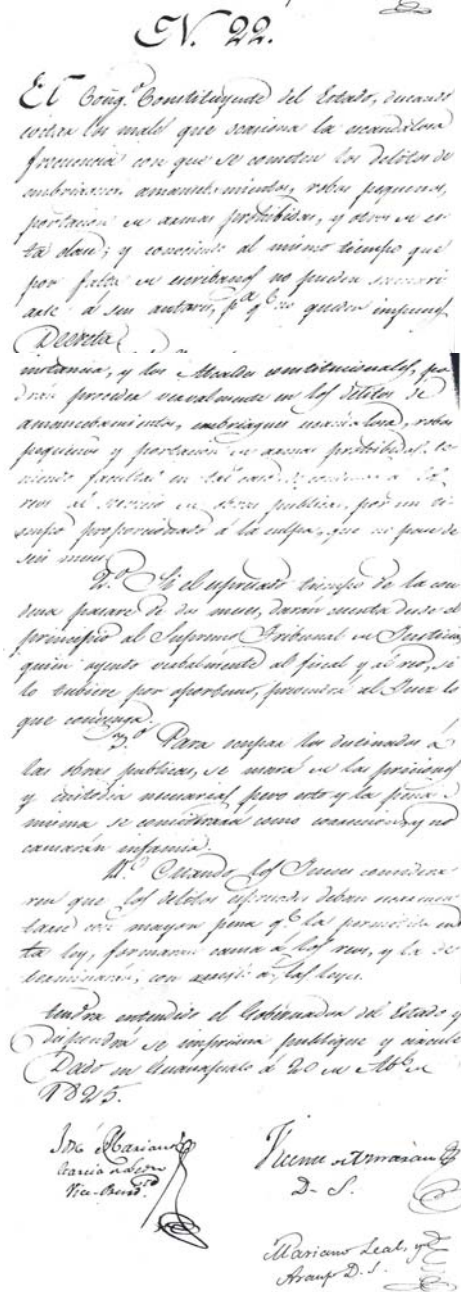 N. 22.
El Cong.º Constituyente del Estado, deseando
evitar los males que ocasiona la escandalosa
frecuencia con que se cometen los delitos de
embriaguez, amancebamientos, robos pequeños,
portacion de armas prohibidas, y otros de es-
ta clase; y conociendo al mismo tiempo que
por falta de escribanos no pueden
á sus autores, p.ª q.e no queden impunes
Decreta
instancia, y los Alcaldes constitucionales, po-
drán proceder verbalmente en los delitos de
amancebamientos, embriaguez, robos
pequeños y portacion de armas prohibidas, te-
niendo facultad en tal caso de condenar á los
reos al servicio de obras publicas, por un ti-
empo proporcionado á la culpa, que no pase de
seis meses.
2.º Si el espresado tiempo de la con-
dena pasare de dos meses, darán cuenta desde el
principio al Supremo Tribunal de Justicia,
quien oyendo verbalmente al fiscal y al reo, si
lo tubiere por oportuno, prevendrá al Juez lo
que convenga.
3.º Para ocupar los destinados á
las obras publicas, se usará de las prisiones
y custodia necesarias, pero esto y la pena
misma se considerará como correccion, y no
causarán infamia.
4.º Cuando los Jueces considera-
ren que los delitos espresados deban
con mayor pena q.e la permitida en es-
ta ley, formarán causa á los reos, y la de-
terminarán, con arreglo á las leyes.
Tendra entendido el Gobernador del Estado y
dispondra se imprima publique y circule
Dado en Guanajuato á 20 de
1825.
José Mariano
Garcia de Leon
Vice-Presid.te
Vicente de Umaran
D. S.
Mariano Leal, y
Araujo D. S.